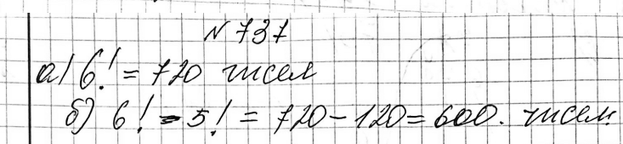 № 737
а) 6! = 720 чисел
б) 6! - 5! = 720 - 120 = 600. чисел